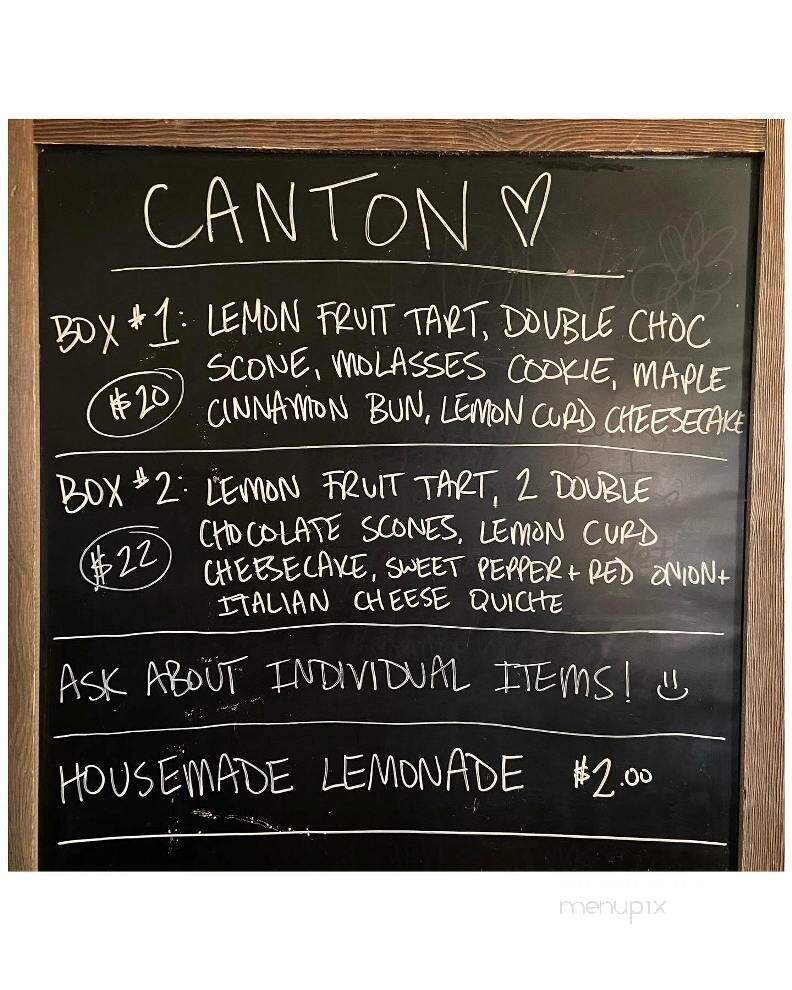 CANTON ♡
BOX #1: LEMON FRUIT TART, DOUBLE CHOC
SCONE, MOLASSES COOKIE, MAPLE
$20 CINNAMON BUN, LEMON CURD CHEESECAKE
BOX #2: LEMON FRUIT TART, 2 DOUBLE
CHOCOLATE SCONES, LEMON CURD
$22 CHEESECAKE, SWEET PEPPER + RED ONION +
ITALIAN CHEESE QUICHE
ASK ABOUT INDIVIDUAL ITEMS! :)
HOUSEMADE LEMONADE $2.00
menupix